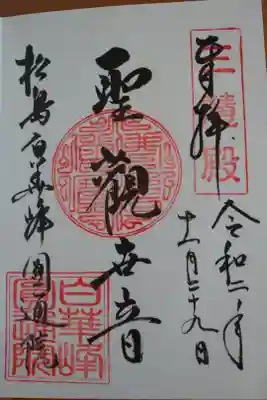 奉拝
三慧殿
令和二年
十一月二十九日
聖觀世音
松島白華峰圓通院
白華峰
圓通院